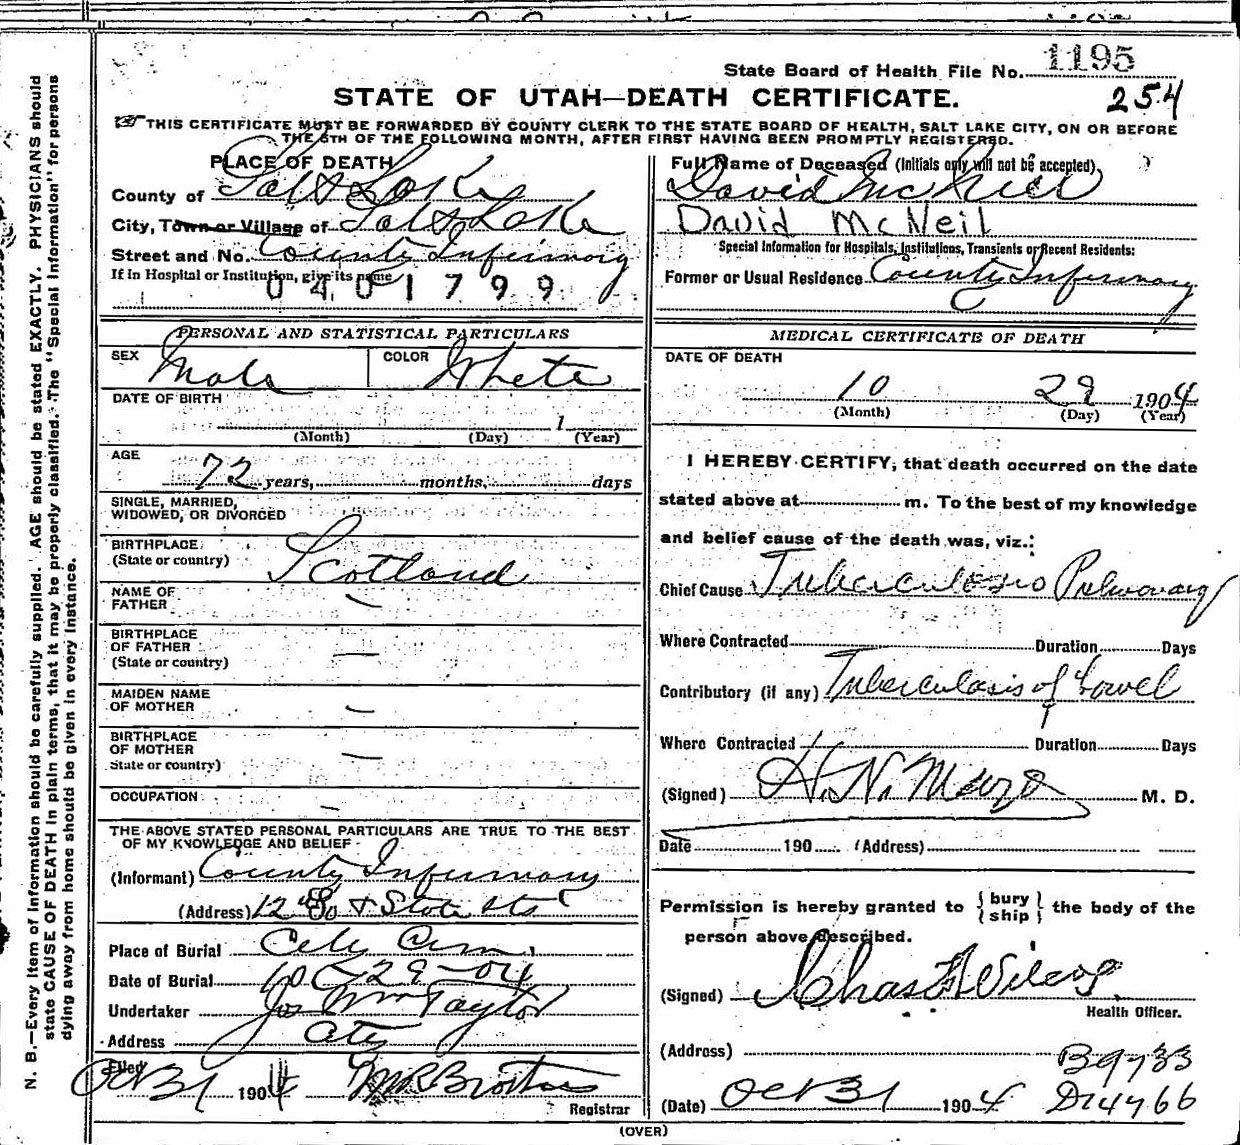 State Board of Health File No. 1195
STATE OF UTAH—DEATH CERTIFICATE. 254
THIS CERTIFICATE MUST BE FORWARDED BY COUNTY CLERK TO THE STATE BOARD OF HEALTH, SALT LAKE CITY, ON OR BEFORE
THE 5TH OF THE FOLLOWING MONTH, AFTER FIRST HAVING BEEN PROMPTLY REGISTERED.
PLACE OF DEATH
County of Salt Lake
City, Town or Village of Salt Lake
Street and No. County Infirmary
If in Hospital or Institution, give its name
0401799
Full Name of Deceased (Initials only will not be accepted)
David McNeil
David McNeil
Special Information for Hospitals, Institutions, Transients or Recent Residents:
Former or Usual Residence County Infirmary
PERSONAL AND STATISTICAL PARTICULARS
SEX Male COLOR White
DATE OF BIRTH
1
(Month) (Day) (Year)
AGE
72 years, months, days
SINGLE, MARRIED,
WIDOWED, OR DIVORCED
BIRTHPLACE
(State or country) Scotland
NAME OF
FATHER —
BIRTHPLACE
OF FATHER
(State or country) —
MAIDEN NAME
OF MOTHER —
BIRTHPLACE
OF MOTHER
State or country) —
OCCUPATION —
THE ABOVE STATED PERSONAL PARTICULARS ARE TRUE TO THE BEST
OF MY KNOWLEDGE AND BELIEF
(Informant) County Infirmary
(Address) 12 So & State sts
Place of Burial City Cem.
Date of Burial 10-29-04
Undertaker Jos Wm Taylor
Address City
Filed Oct 31 1904
Registrar
MEDICAL CERTIFICATE OF DEATH
DATE OF DEATH
10 29 1904
(Month) (Day) (Year)
I HEREBY CERTIFY, that death occurred on the date
stated above at m. To the best of my knowledge
and belief cause of the death was, viz.:
Chief Cause Tuberculosis Pulmonary
Where Contracted Duration Days
Contributory (if any) Tuberculosis of bowel
Where Contracted Duration Days
(Signed) H. N. Mayo M. D.
Date 190 (Address)
Permission is hereby granted to {bury
ship} the body of the
person above described.
(Signed)
Health Officer.
(Address) B9733
(Date) Oct 31 1904 D14766
(OVER)
N. B.—Every item of information should be carefully supplied. AGE should be stated EXACTLY. PHYSICIANS should
state CAUSE OF DEATH in plain terms, that it may be properly classified. The "Special Information" for persons
dying away from home should be given in every instance.